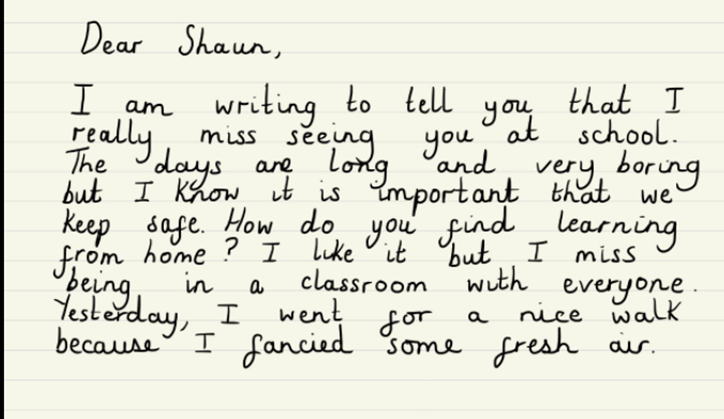 Dear Shaun,
I am writing to tell you that I
really miss seeing you at school.
The days are long and very boring
but I know it is important that we
keep safe. How do you find learning
from home? I like it but I miss
being in a classroom with everyone.
Yesterday, I went for a nice walk
because I fancied some fresh air.